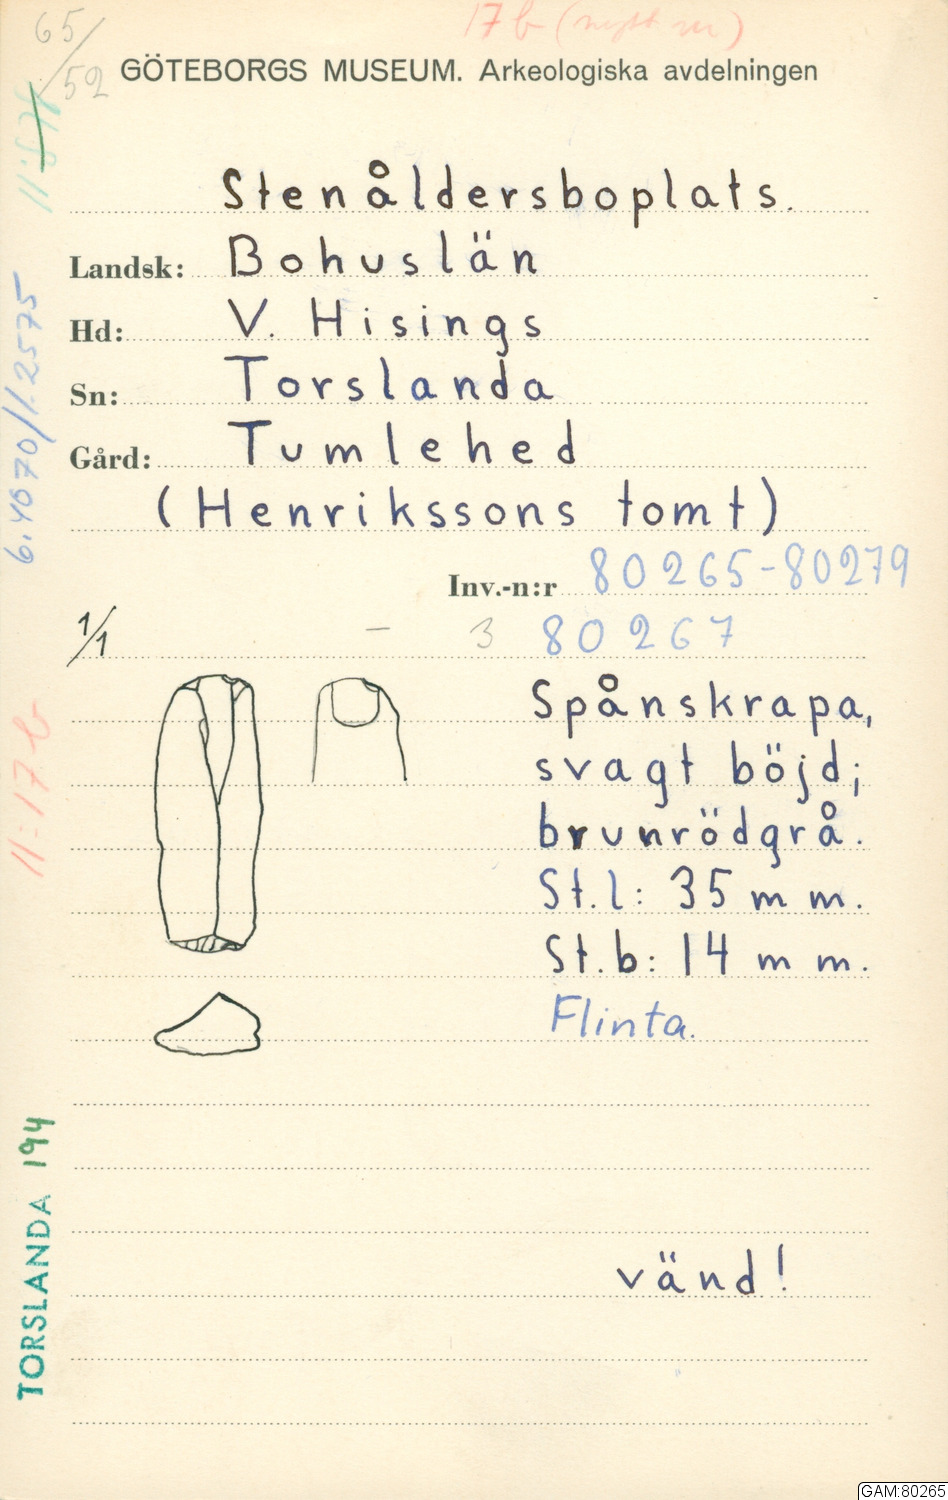 17 b (nytt nr)
65/52
GÖTEBORGS MUSEUM. Arkeologiska avdelningen
Stenåldersboplats.
Landsk: Bohuslän
Hd: V. Hisings
Sn: Torslanda
Gård: Tumlehed
(Henrikssons tomt)
Inv.-n:r 80265-80279
1/1 - 3 80267
Spånskrapa,
svagt böjd;
brunrödgrå.
St.l: 35 mm.
St.b: 14 mm.
Flinta.
vänd!
6.4070/1.2575
11:17 b
TORSLANDA 194
GAM:80265